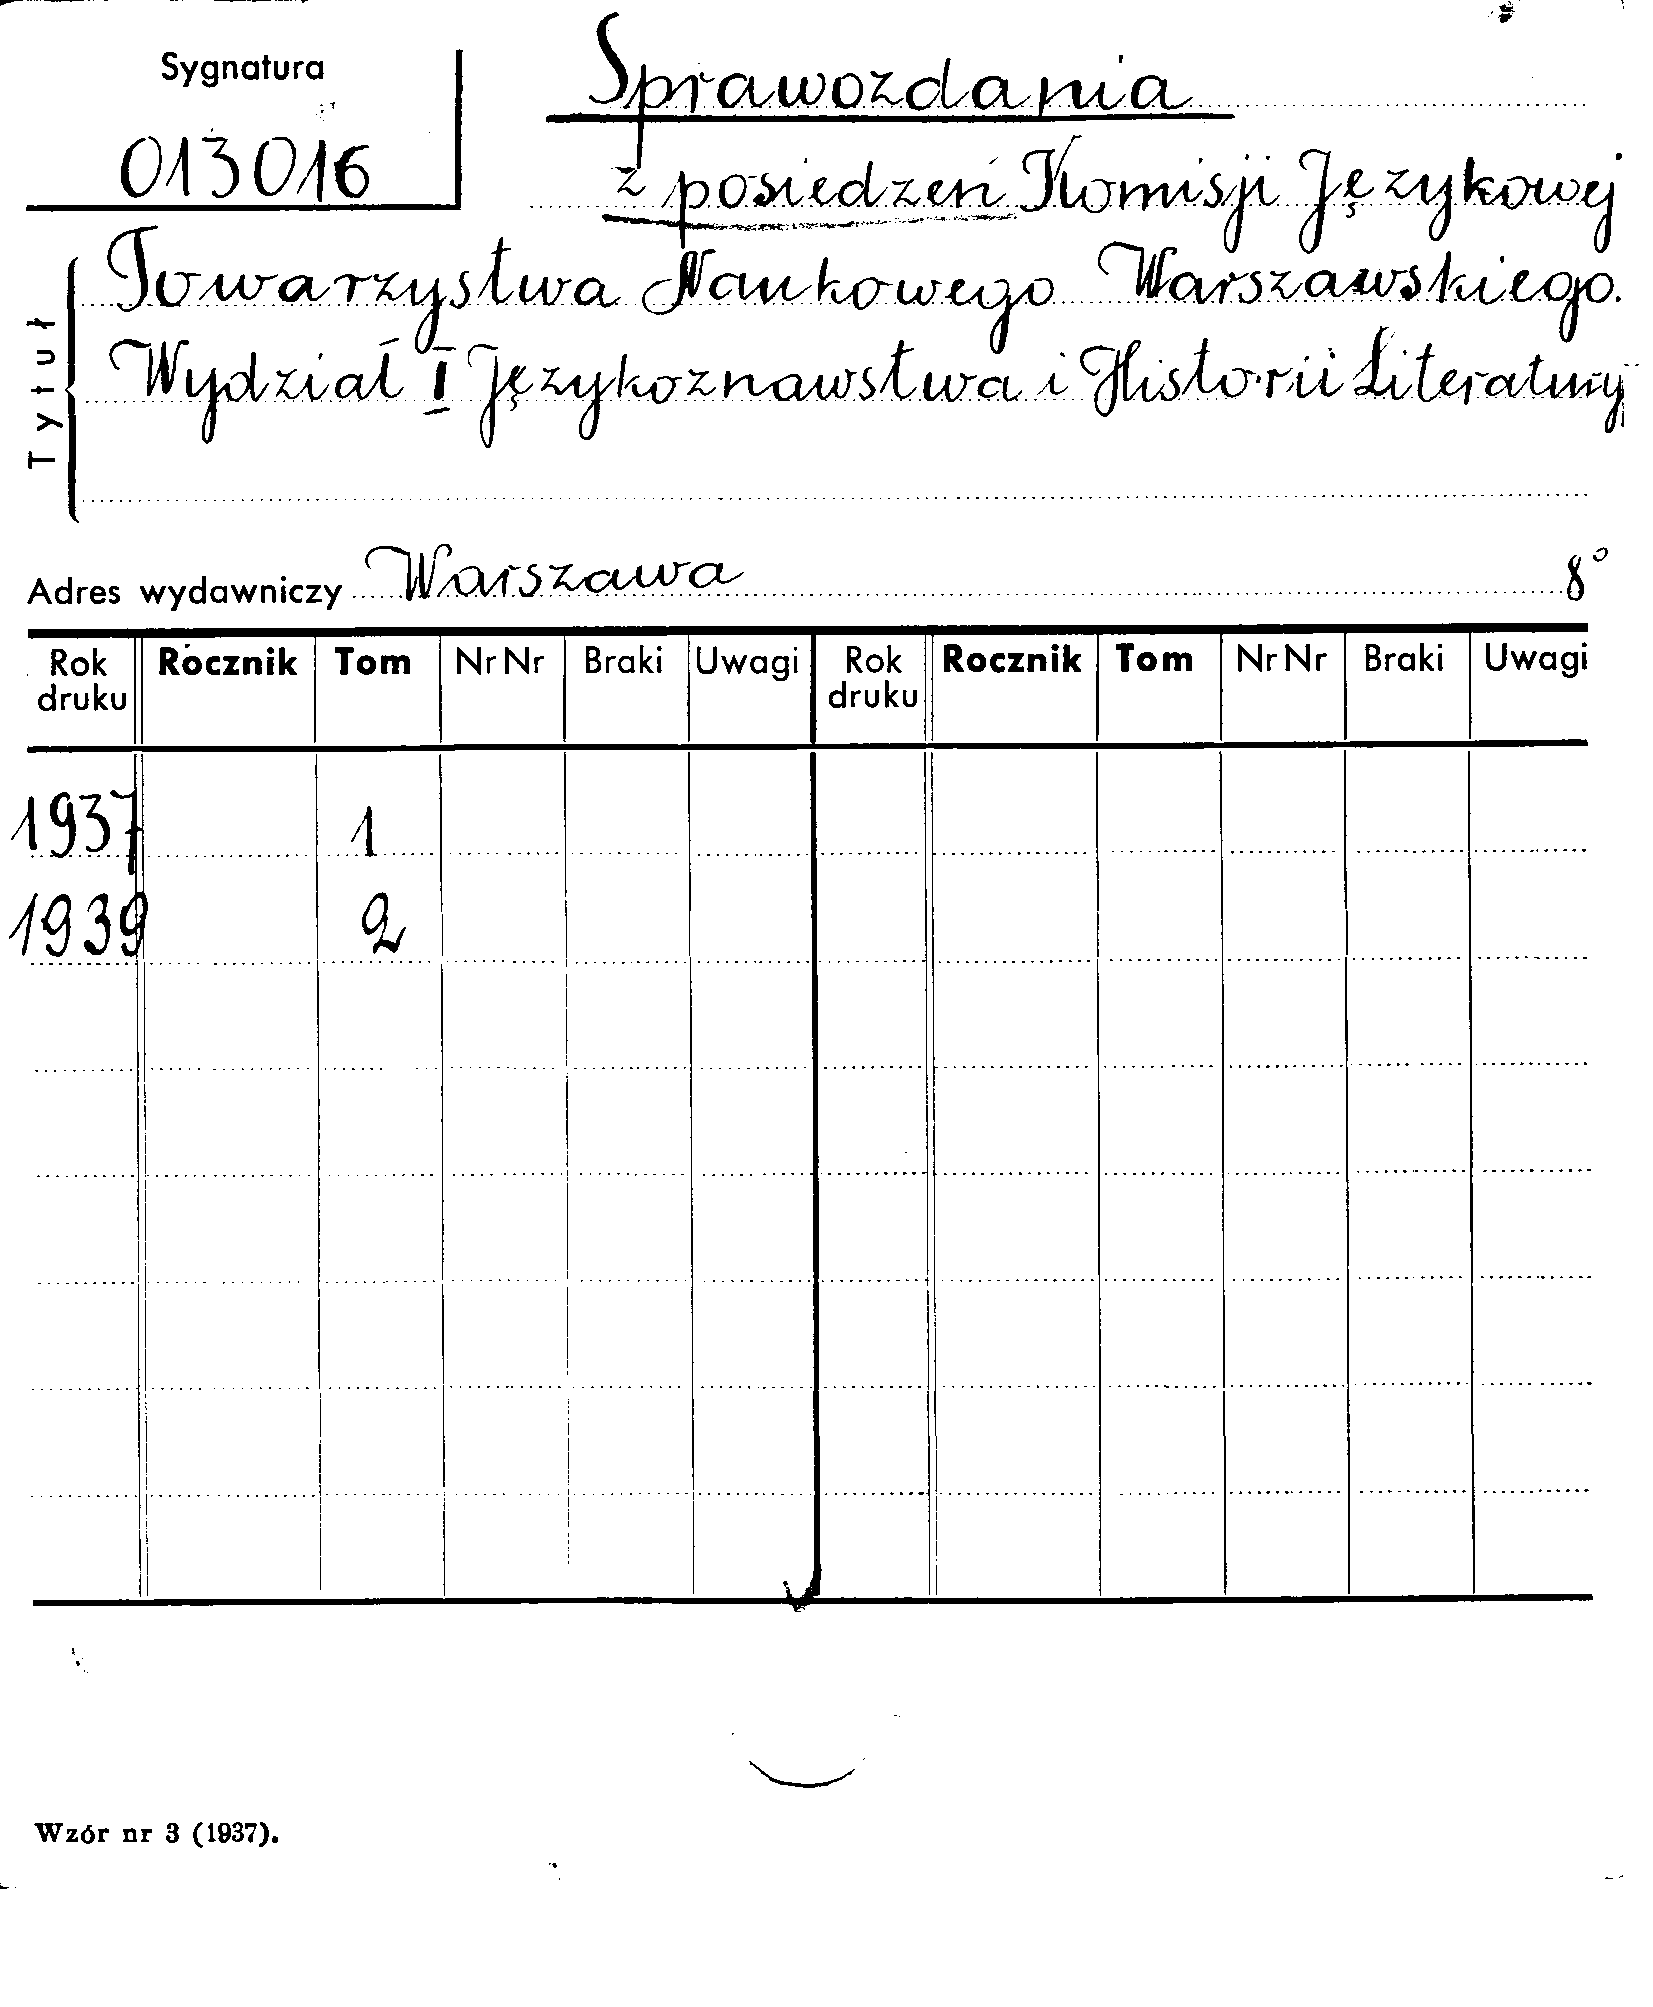 Sygnatura
013016
Sprawozdania
z posiedzeń Komisji Językowej
Towarzystwa Naukowego Warszawskiego.
Wydział I Językoznawstwa i Historii Literatury
Tytuł
Adres wydawniczy Warszawa 8°
Rok druku Rocznik Tom Nr Nr Braki Uwagi Rok druku Rocznik Tom Nr Nr Braki Uwagi
1937 1
1939 2
Wzór nr 3 (1937).